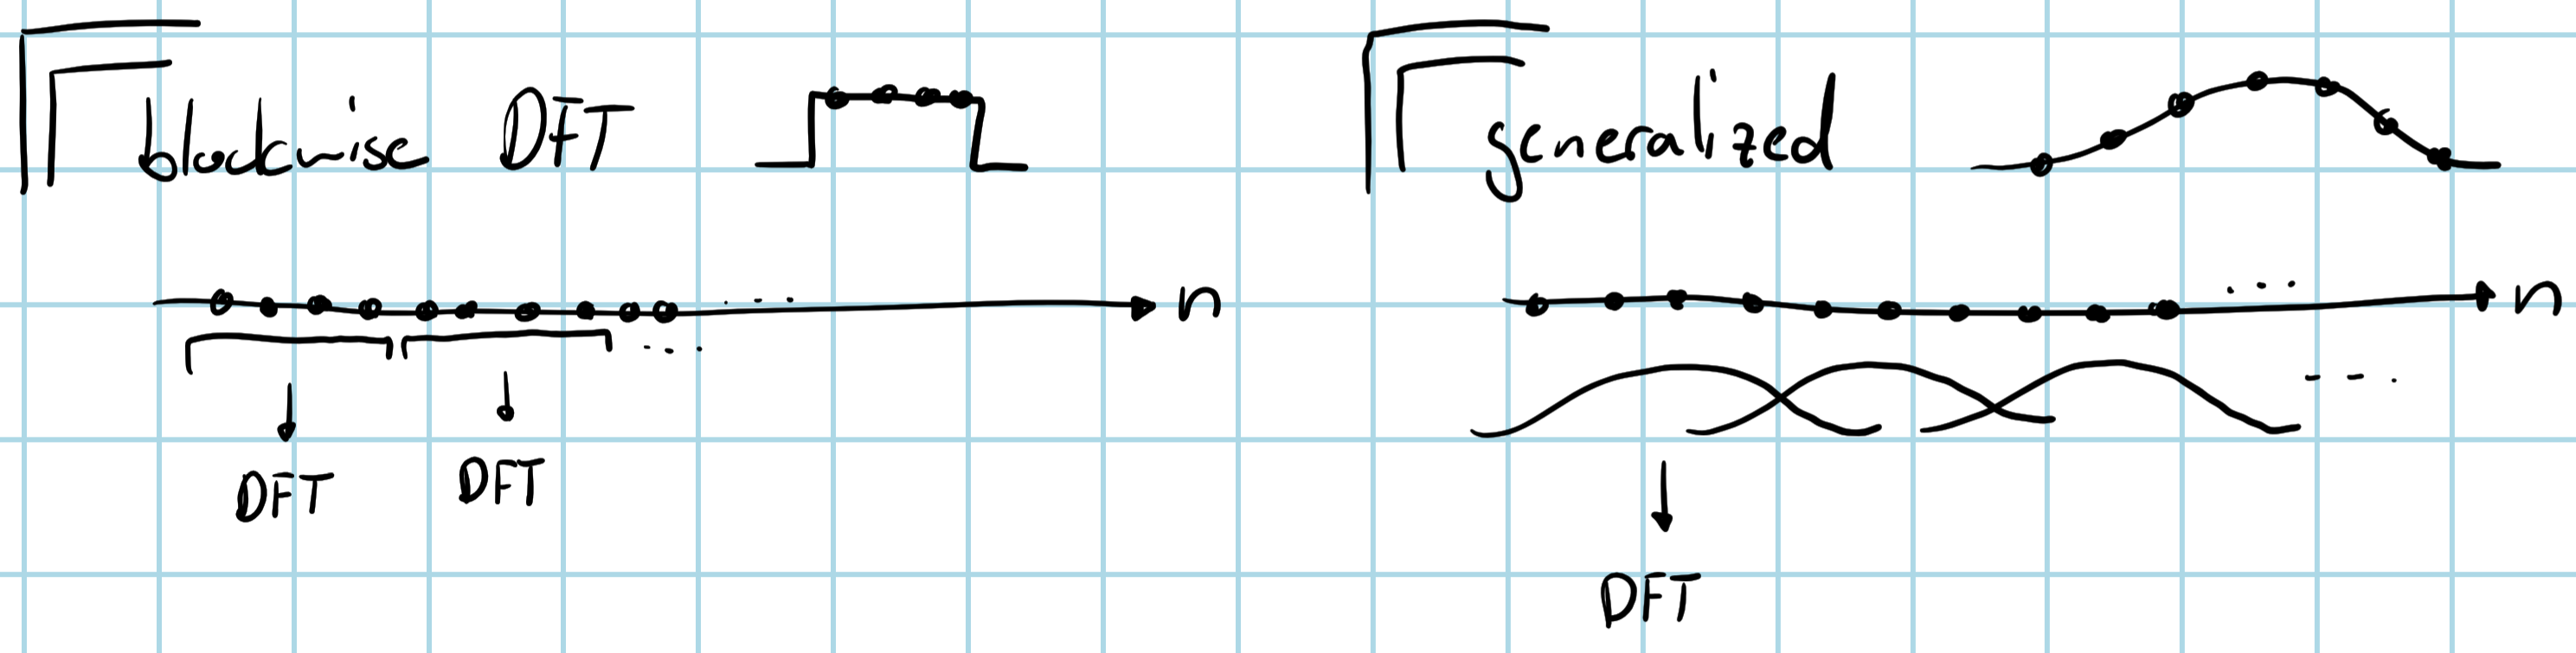 blockwise DFT
n
DFT DFT
generalized
n
DFT